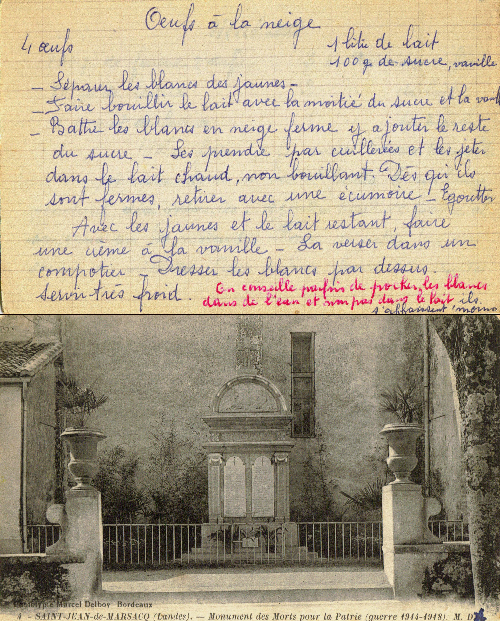 Oeufs à la neige
4 œufs
1 litre de lait
100 g de sucre, vanille
_ Séparer les blancs des jaunes _
_ Faire bouillir le lait avec la moitié du sucre et la
_ Battre les blancs en neige ferme y ajouter le reste
du sucre _ Les prendre par cuillerées et les jeter
dans le lait chaud, non bouillant. Dès qu'ils
sont fermes, retirer avec une écumoire _ Egoutter
Avec les jaunes et le lait restant, faire
une crème à la vanille _ La verser dans un
compotier _ Dresser les blancs par dessus.
Servir très froid.
On conseille parfois de pocher les blancs
dans de l'eau et non pas dans le lait ils
s'affaissent moins
Phototypie Marcel Delboy Bordeaux
4 - SAINT-JEAN-de-MARSACQ (Landes). — Monument des Morts pour la Patrie (guerre 1914-1918). M. D